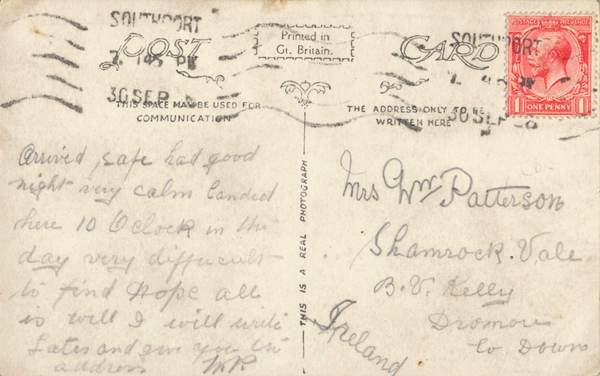 SOUTHPORT
7. 145 PM
30 SEP
POST
Printed in
Gt. Britain.
CARD
SOUTHPORT
30 SEP 26
POSTAGE REVENUE
1 ONE PENNY 1
THIS SPACE MAY BE USED FOR
COMMUNICATION
THE ADDRESS ONLY TO BE
WRITTEN HERE
THIS IS A REAL PHOTOGRAPH
Arrived safe had good
night very calm landed
here 10 Oclock in the
day very difficult
to find Hope all
is will I will write
Later and give you the
address WP
Mrs Wm Patterson
Shamrock Vale
B.V. Kelly
Dromore
Co Down
Ireland